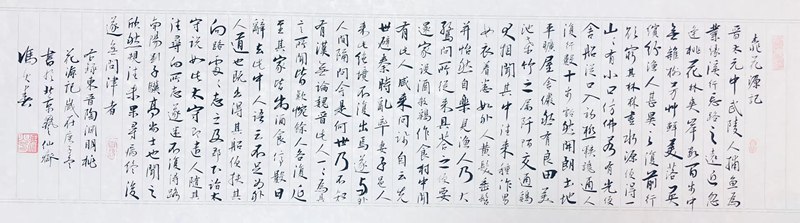 桃花源記
晉太元中武陵人捕魚為
業緣溪行忘路之遠近忽
逢桃花林夾岸數百步中
無雜樹芳草鮮美落英
繽紛漁人甚異之復前行
欲窮其林林盡水源便得一
山山有小口仿佛若有光便
舍船從口入初極狹才通人
復行數十步豁然開朗土地
平曠屋舍儼然有良田美
池桑竹之屬阡陌交通雞
犬相聞其中往來種作男
女衣著悉如外人黃髮垂髫
並怡然自樂見漁人乃大
驚問所從來具答之便要
還家設酒殺雞作食村中聞
有此人咸來問訊自云先
世避秦時亂率妻子邑人
來此絕境不復出焉遂與外
人間隔問今是何世乃不知
有漢無論魏晉此人一一為具
言所聞皆嘆惋餘人各復延
至其家皆出酒食停數日
辭去此中人語云不足為外
人道也既出得其船便扶其
向路處處志之及郡下詣太
守說如此太守即遣人隨其
往尋向所志遂迷不復得路
南陽劉子驥高尚士也聞之
欣然規往未果尋病終後
遂無問津者
右錄東晉陶淵明桃
花源記歲在
書於北京仙齋
馮